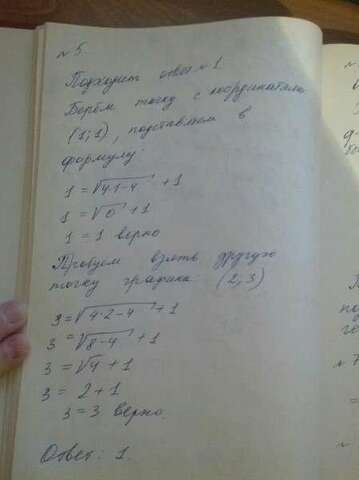 № 5.
Подходит ответ №1
Берём точку с координатами
(1;1), подставляем в
формулу:
1 = √4·1-4 + 1
1 = √0 + 1
1 = 1 верно
Пробуем взять другую
точку графика (2;3)
3 = √4·2-4 + 1
3 = √8-4 + 1
3 = √4 + 1
3 = 2 + 1
3 = 3 верно.
Ответ: 1.